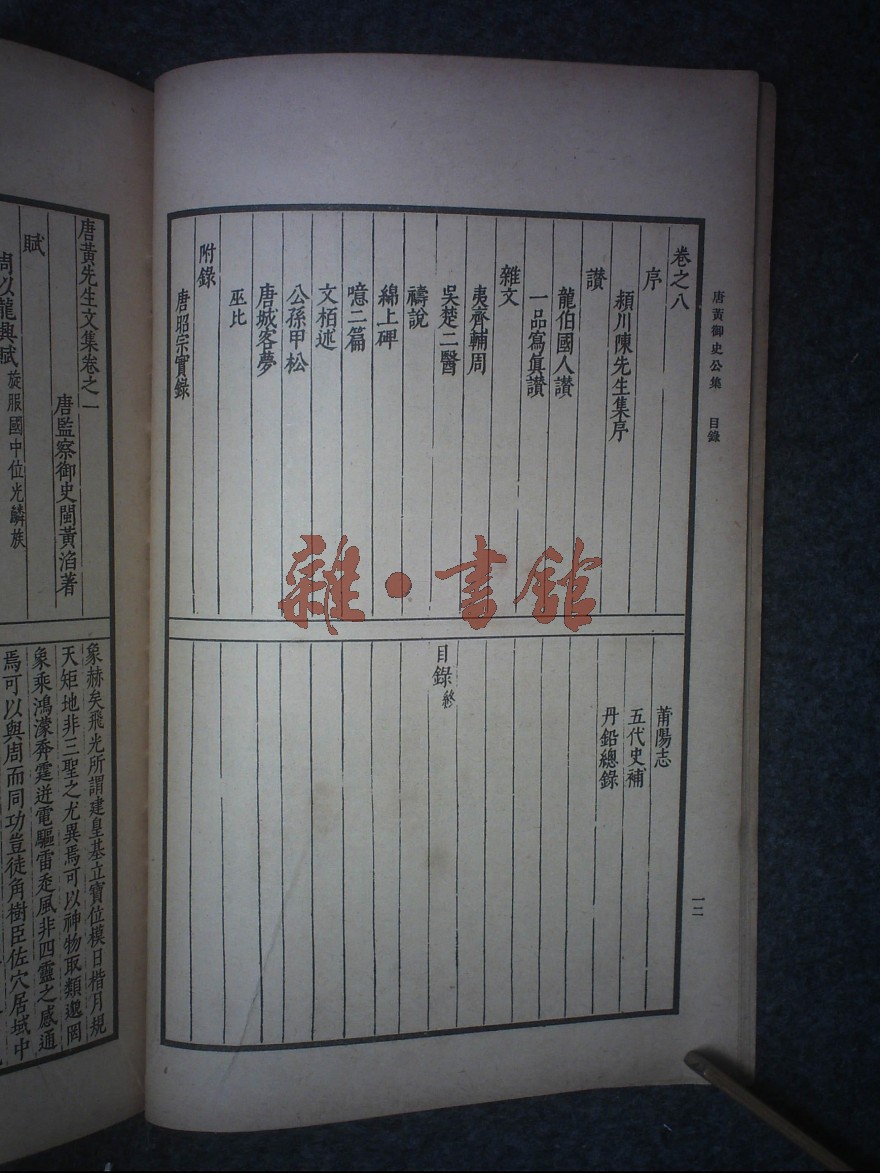 唐黃御史公集 目錄
一二
卷之八
序
潁川陳先生集序
讚
龍伯國人讚
一品寫眞讚
雜文
夷齊輔周
吳楚二醫
禱說
綿上碑
噫二篇
文栢述
公孫甲松
唐城客夢
巫比
附錄
唐昭宗實錄
莆陽志
五代史補
丹鉛總錄
目錄終
雜·書館
唐黃先生文集卷之一
唐監察御史閩黃滔著
賦
周以龍興賦 旋服國中位光鱗族
象赫矣飛光所謂建皇基立寶位模日楷月規
天矩地非三聖之尤異焉可以神物取類邈罔
象乘鴻濛奔霆迸電驅雷走風非四靈之感通
焉可以與周而同功豈徒角樹臣佐穴居域中